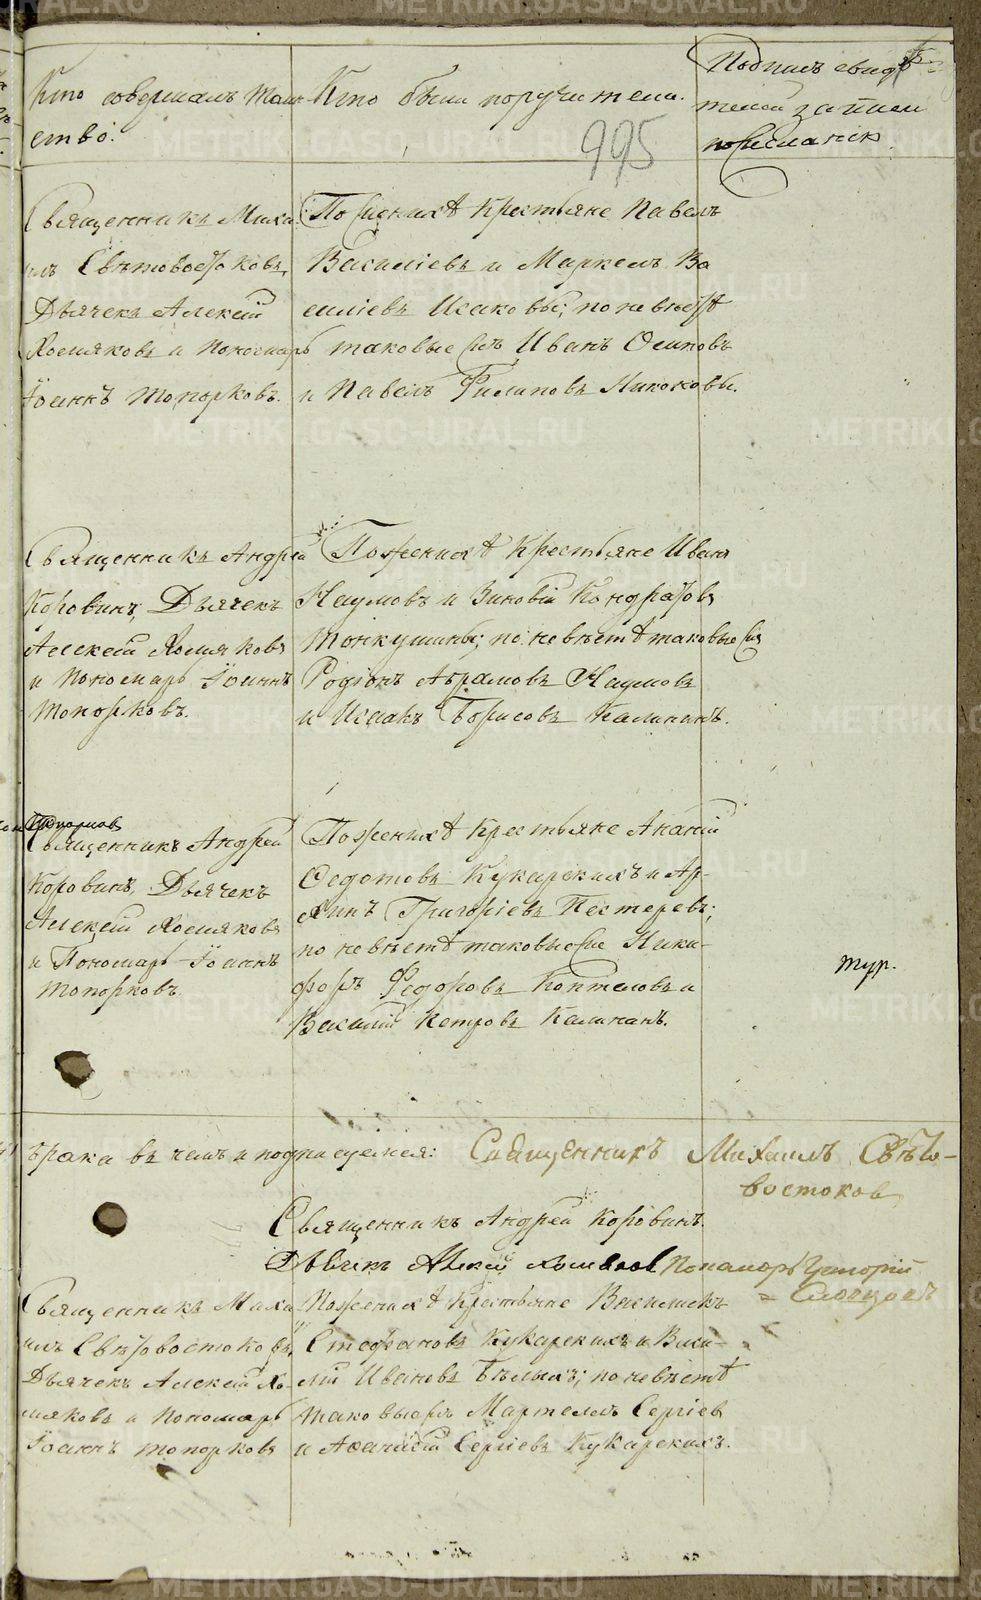 Кто совершалъ таин-
ство.
Кто были поручители.
Подпись свидѣ-
телей записи
по желанію
995
Священникъ Миха-
илъ Свѣтовостоковъ,
Дьячекъ Алексій
Хомяковъ и Пономарь
Іоаннъ Топорковъ.
По женихѣ Крестьяне Павелъ
Василіевъ и Маркелъ Ва
силіевъ Исаковы; по невѣстѣ
таковые Иванъ Осиповъ
и Павелъ Филиповъ
Священникъ Андрей
Коровинъ, Дьячекъ
Алексей Хомяковъ
и Пономарь Іоаннъ
Топорковъ.
По женихѣ Крестьяне Иванъ
Наумовъ и Зиновій Кондратовъ
по невѣстѣ таковые
Родіонъ Абрамовъ Наумовъ
и Исаакъ Борисовъ Калининъ.
Священникъ Андрей
Коровинъ, Дьячекъ
Алексій Хомяковъ
и Пономарь Іоаннъ
Топорковъ
По женихѣ Крестьяне Ананій
Федотовъ Кукарскихъ и Ар-
хипъ Григоріевъ Пестеревъ;
по невѣстѣ таковые Ники-
форъ Федоровъ Коптеловъ и
Василій Петровъ Калининъ.
тур.
брака въ чемъ и подписуемся: Священникъ Михаилъ Свѣто-
востоковъ
Священникъ Андрей Коровинъ.
Дьячекъ Алексей Хомяковъ Пономарь Григорій
Слопцовъ
Священникъ Миха
илъ Свѣтовостоковъ,
Дьячекъ Алексій Хо-
мяковъ и Пономарь
Іоаннъ Топорковъ
По женихѣ Крестьяне
Стефановъ Кукарскихъ и Васи-
лій Ивановъ Бѣлыхъ; по невѣстѣ
таковые Сергіевъ
и Афанасій Сергіевъ Кукарскихъ.
METRIKI.GASO-URAL.RU